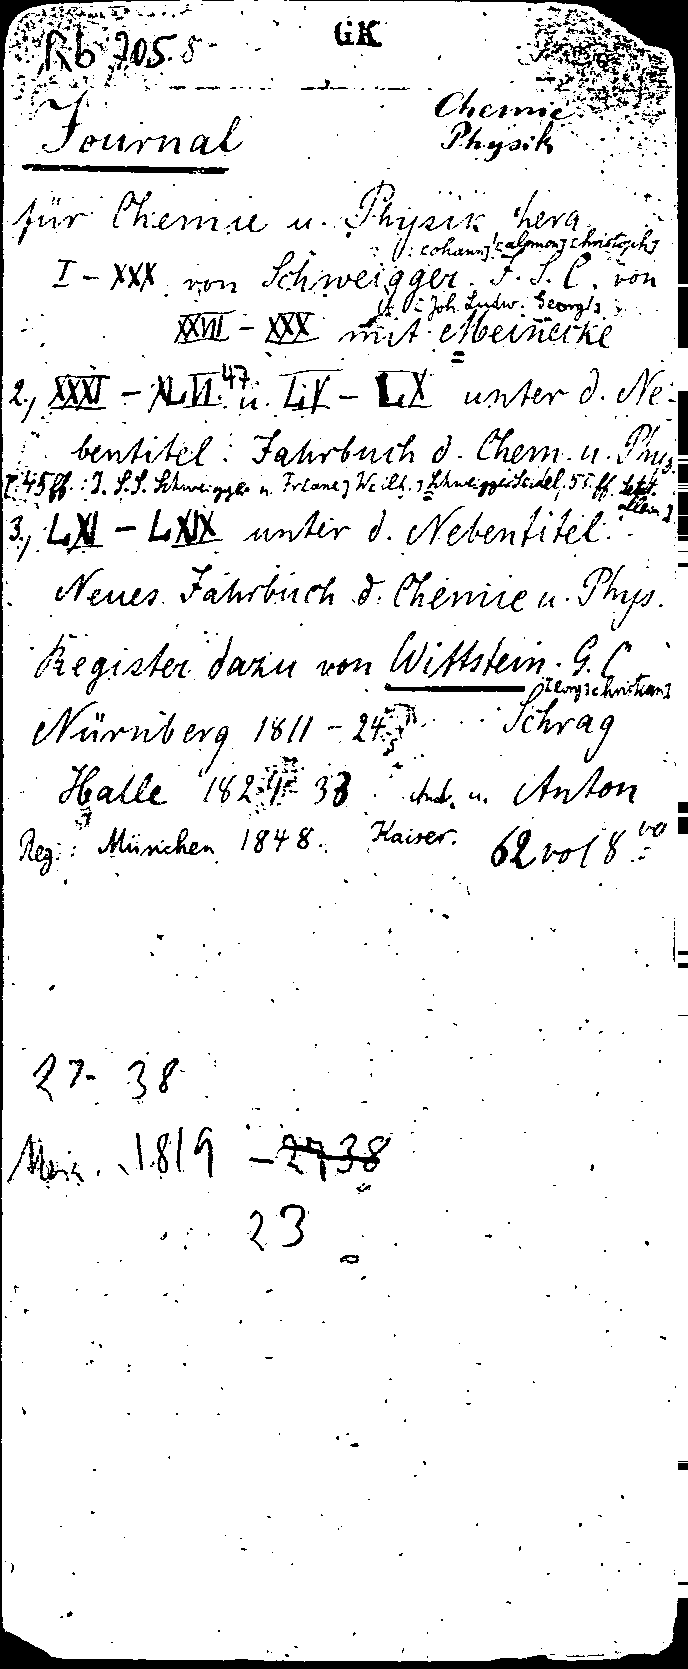 GK
Rb 705.8
Chemie
Physik
Journal
für Chemie u. Physik hera
[ohann] [alomon] [hristoph]
I - XXX von Schweigger. J. S. C. von
Joh. Ludw. Georg
XXVII - XXX mit Meinecke
2., XXXI - XLVI. 47 u. LIV - LX unter d. Ne-
bentitel: Jahrbuch d. Chem. u. Phys
[45 ff.: J. S. S. Schweigger u. Franz Wilh. Schweigger-Seidel, 55 ff. letzt.
allein]
3., LXI - LXIX unter d. Nebentitel:
Neues Jahrbuch d. Chemie u. Phys.
Register dazu von Wittstein. G. C
[eorg] [hristian]
Nürnberg 1811 - 24 Schrag
Halle 182 - 33 u. Anton
Reg.: München 1848. Kaiser. 62 vol 8 vo
27 - 38
Mein. 1819 - 27 38
23